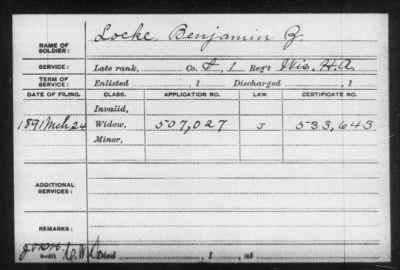 NAME OF SOLDIER: Locke, Benjamin
SERVICE: Late rank, Co. 1 Reg't Wis. H.A.
TERM OF SERVICE: Enlisted , 1 Discharged , 1
DATE OF FILING. CLASS. APPLICATION NO. LAW. CERTIFICATE NO.
Invalid,
1891 Mch 24 Widow, 507,027 J 533,643
Minor,
ADDITIONAL SERVICES:
REMARKS:
Died , 1 , at